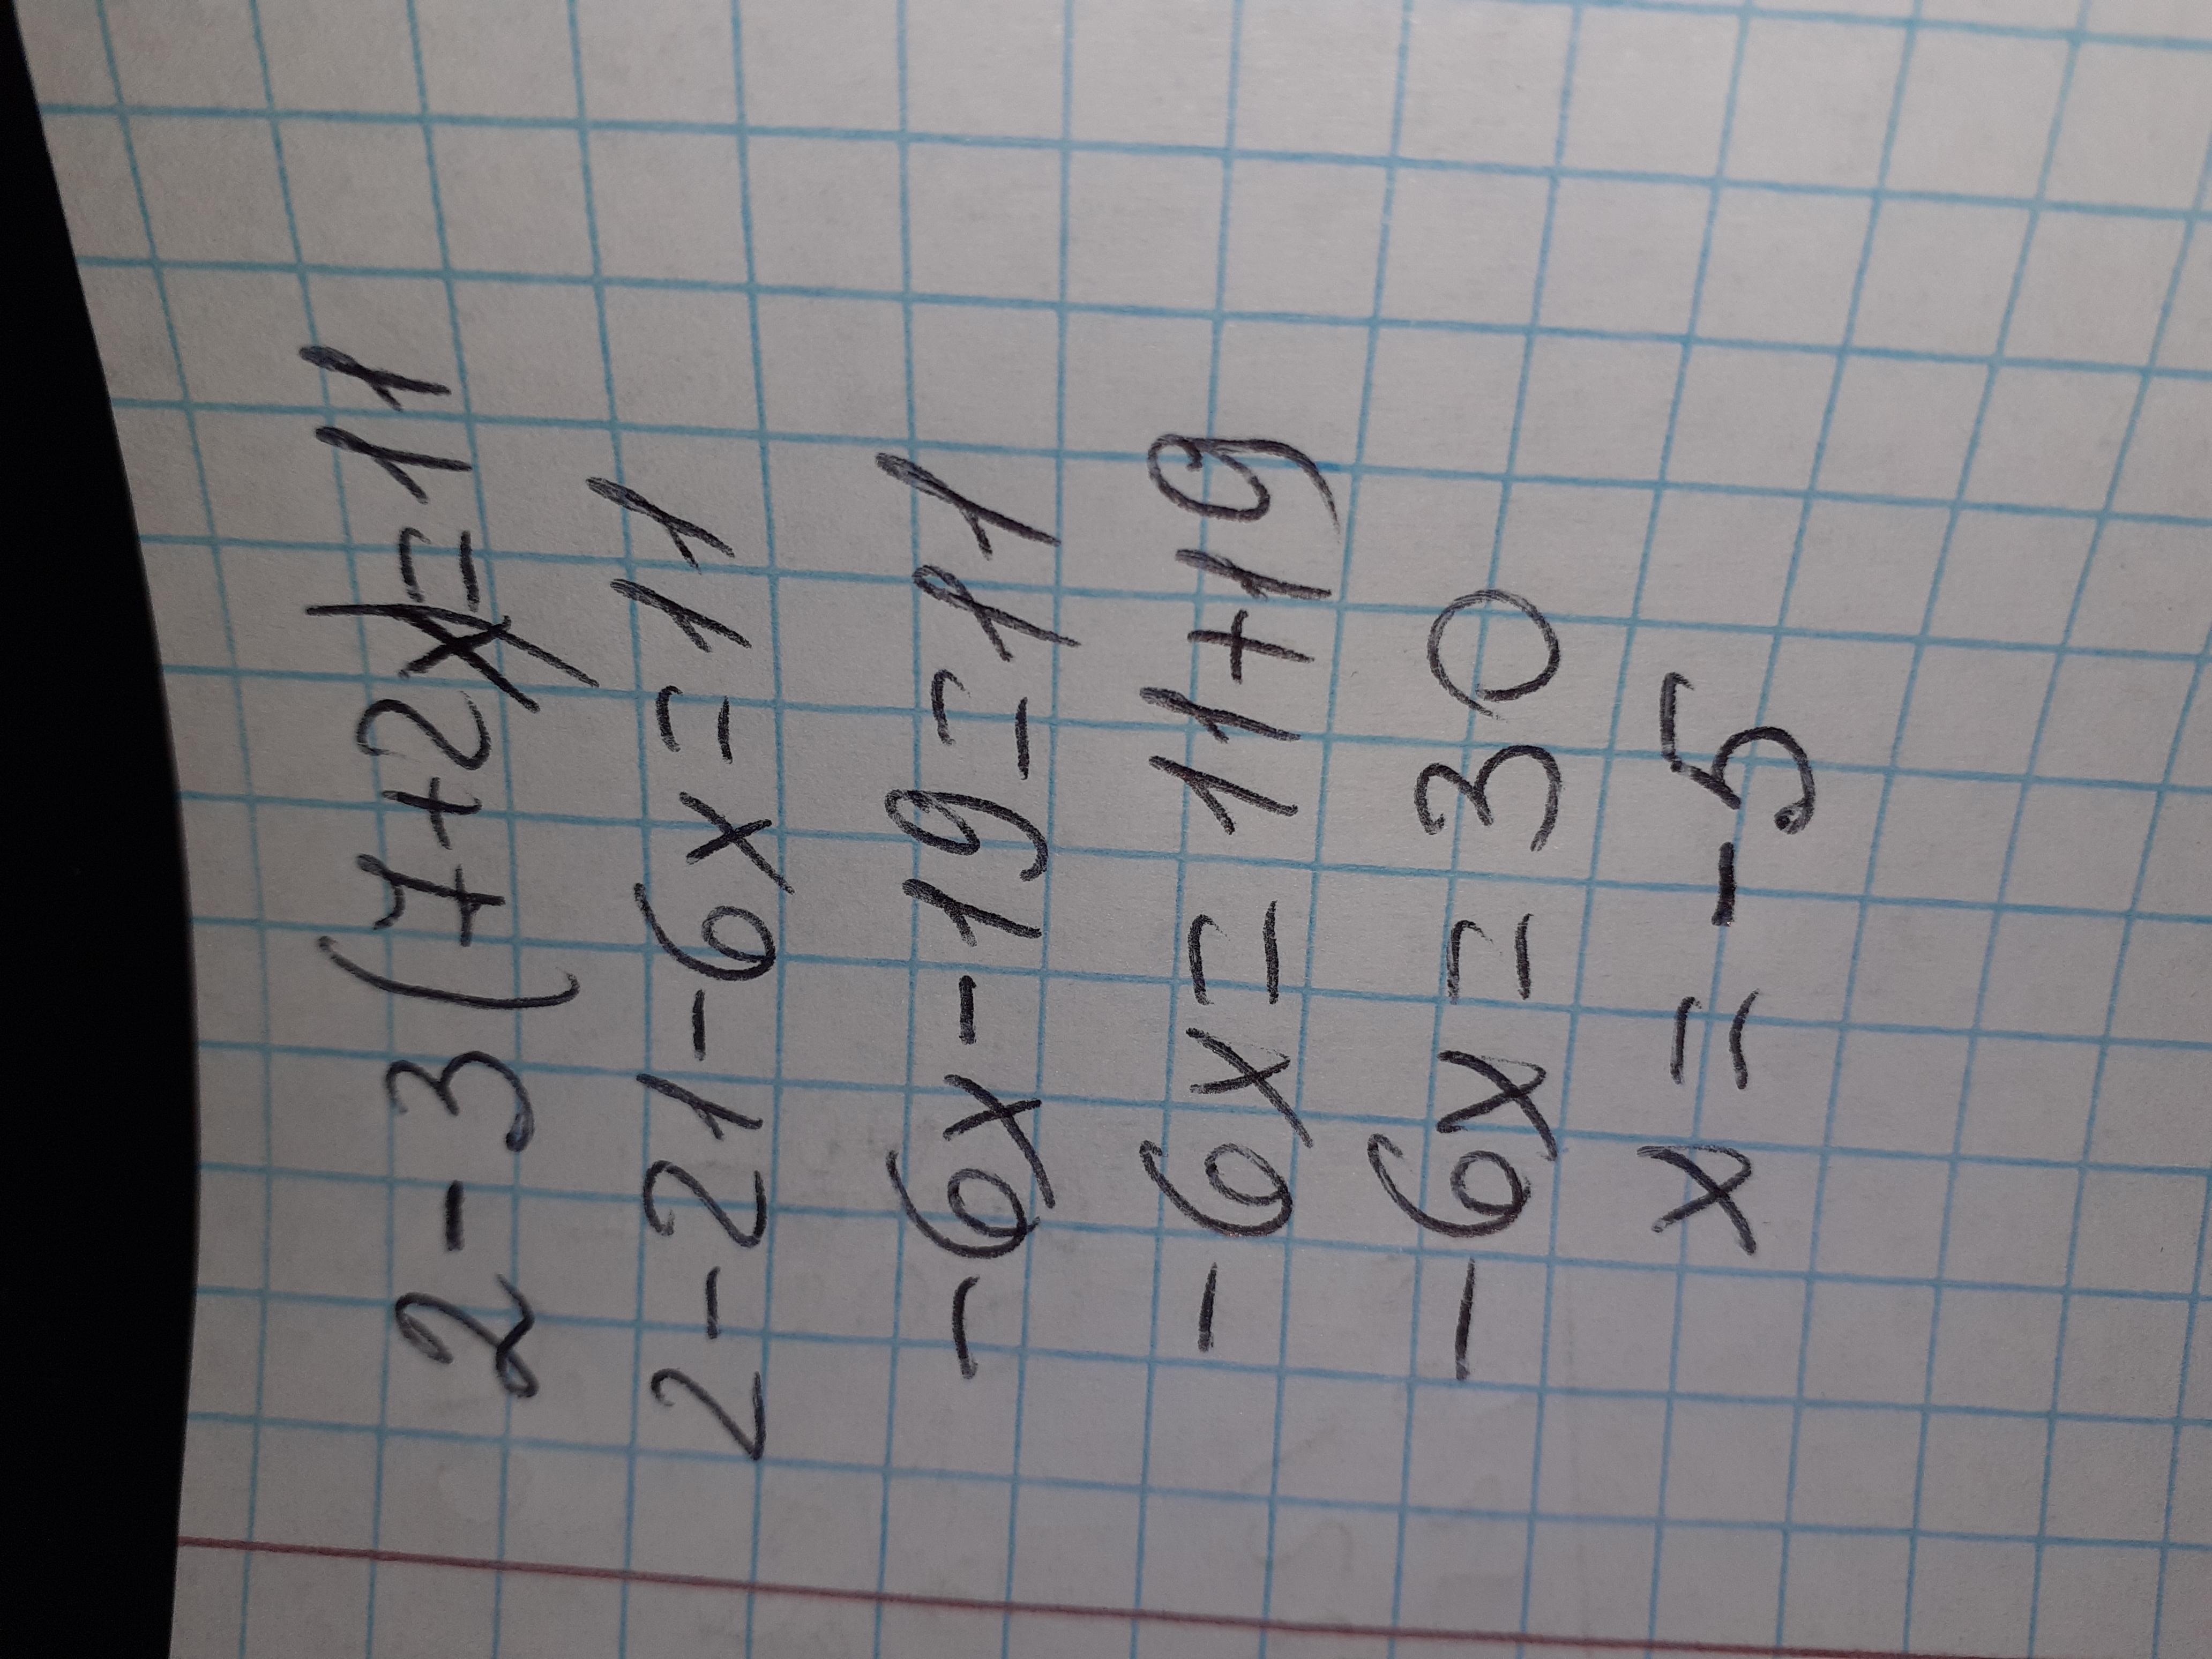 2-3(7+2x)=11
2-21-6x=11
-6x-19=11
-6x=11+19
-6x=30
x=-5